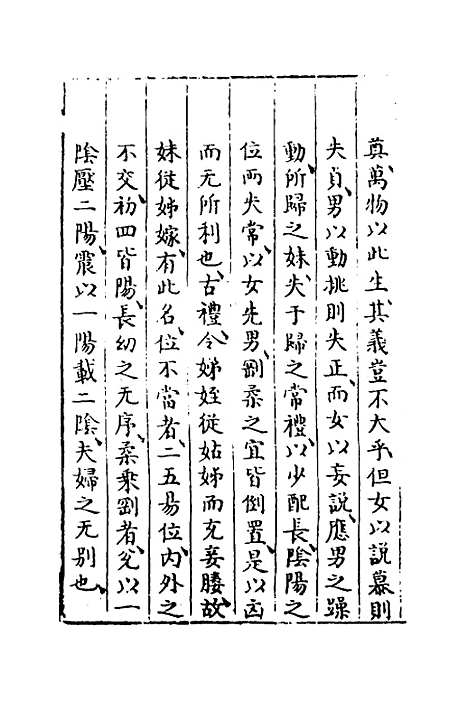 真、萬物以此生、其義豈不大乎、但女以説慕則
失貞、男以動挑則失正、而女以妄説、應男之躁
動、所歸之妹、失于歸之常禮、以少配長、陰陽之
位兩失常、以女先男、剛柔之宜皆倒置、是以凶
而无所利也、古禮、令娣姪從姑姊而充妾媵、故
妹從姊嫁、有此名、位不當者、二五易位、内外之
不交、初四皆陽、長幼之无序、柔乘剛者、兌以一
陰壓二陽、震以一陽載二陰、夫婦之无別也、